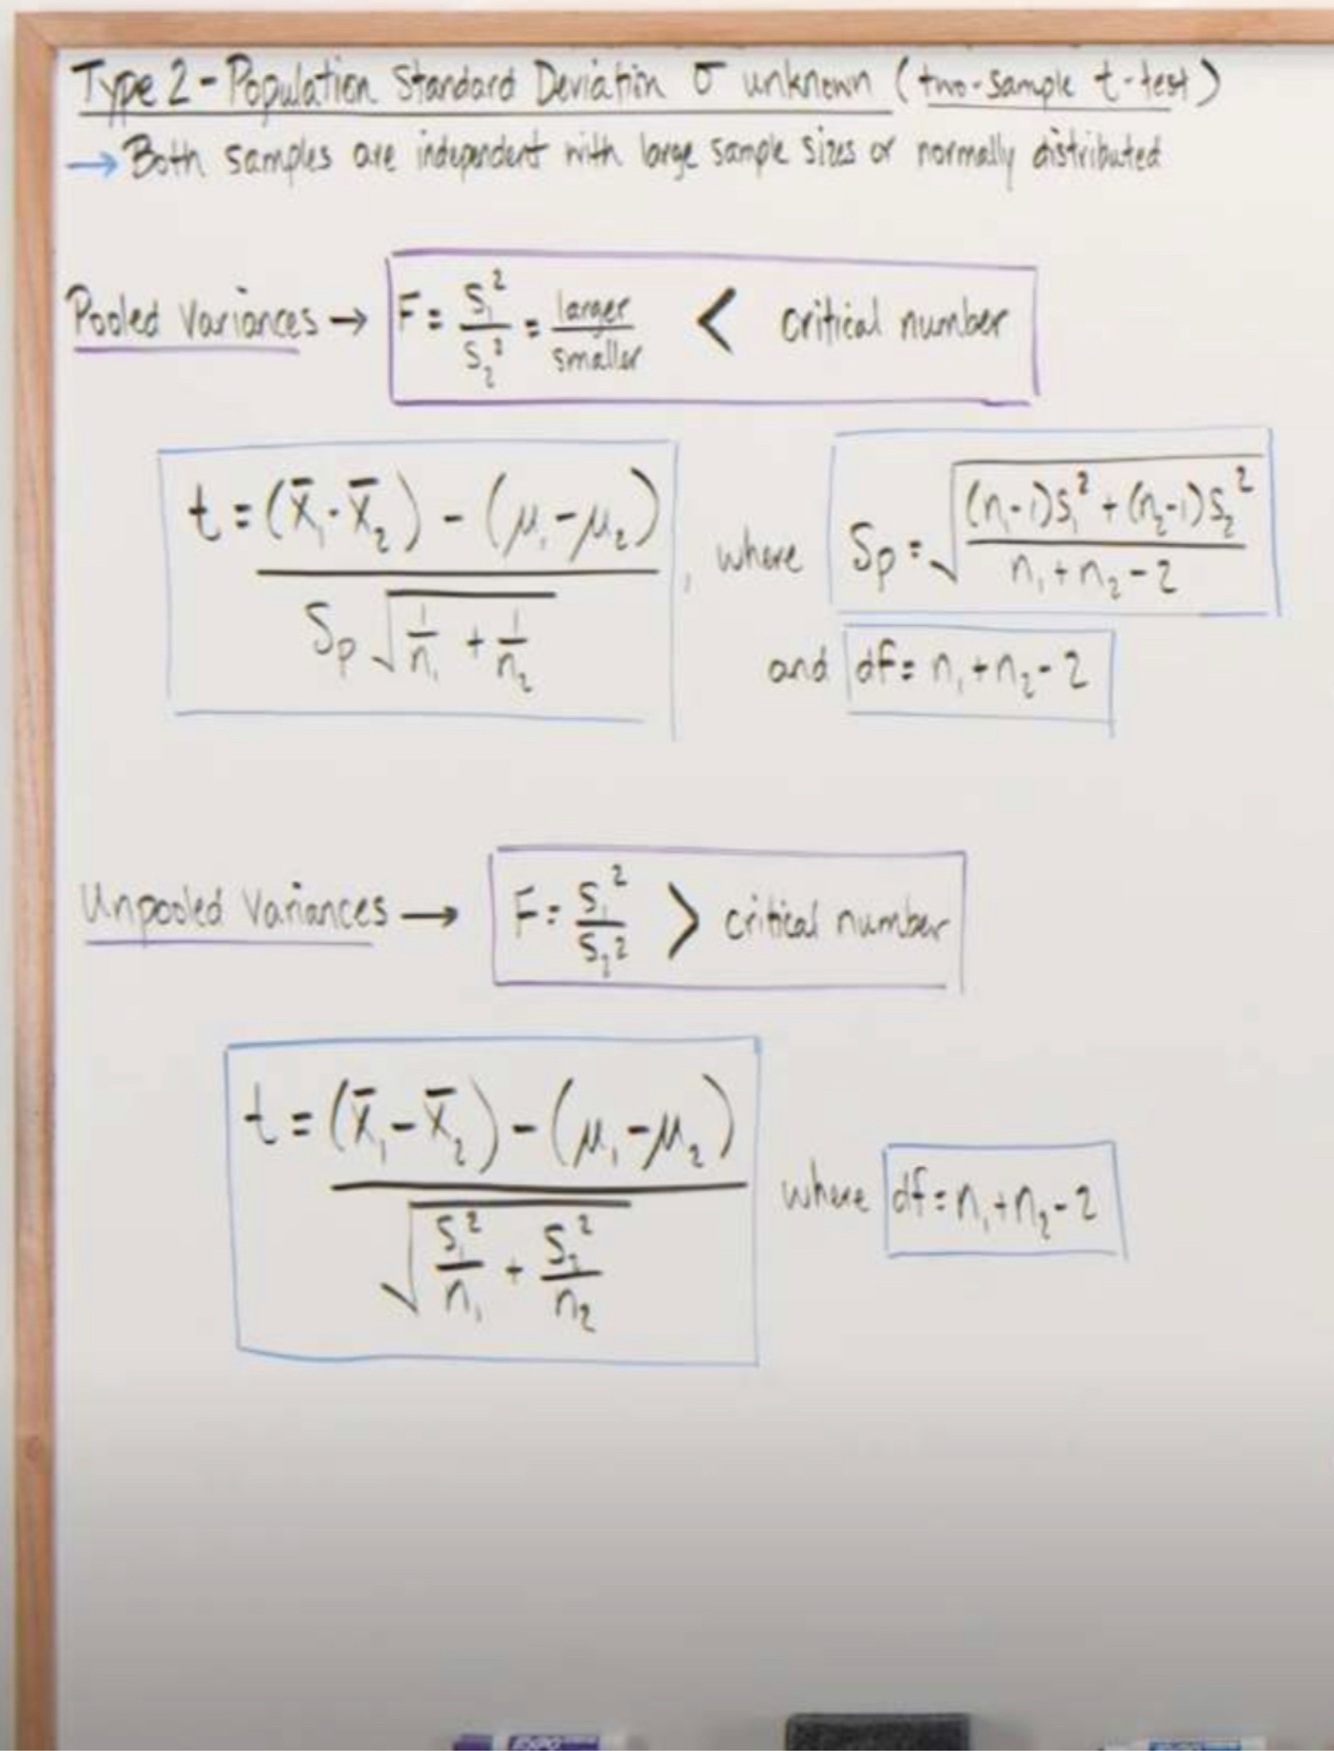 Type 2 - Population Standard Deviation σ unknown (two-sample t-test)
→ Both samples are independent with large sample sizes or normally distributed
Pooled Variances → F = s₁²/s₂² = larger/smaller < critical number
t = (x̄₁ - x̄₂) - (μ₁ - μ₂) / Sp √(1/n₁ + 1/n₂), where Sp = √((n₁-1)s₁² + (n₂-1)s₂² / n₁ + n₂ - 2)
and df = n₁ + n₂ - 2
Unpooled Variances → F = s₁²/s₂² > critical number
t = (x̄₁ - x̄₂) - (μ₁ - μ₂) / √(s₁²/n₁ + s₂²/n₂) where df = n₁ + n₂ - 2
EXPO